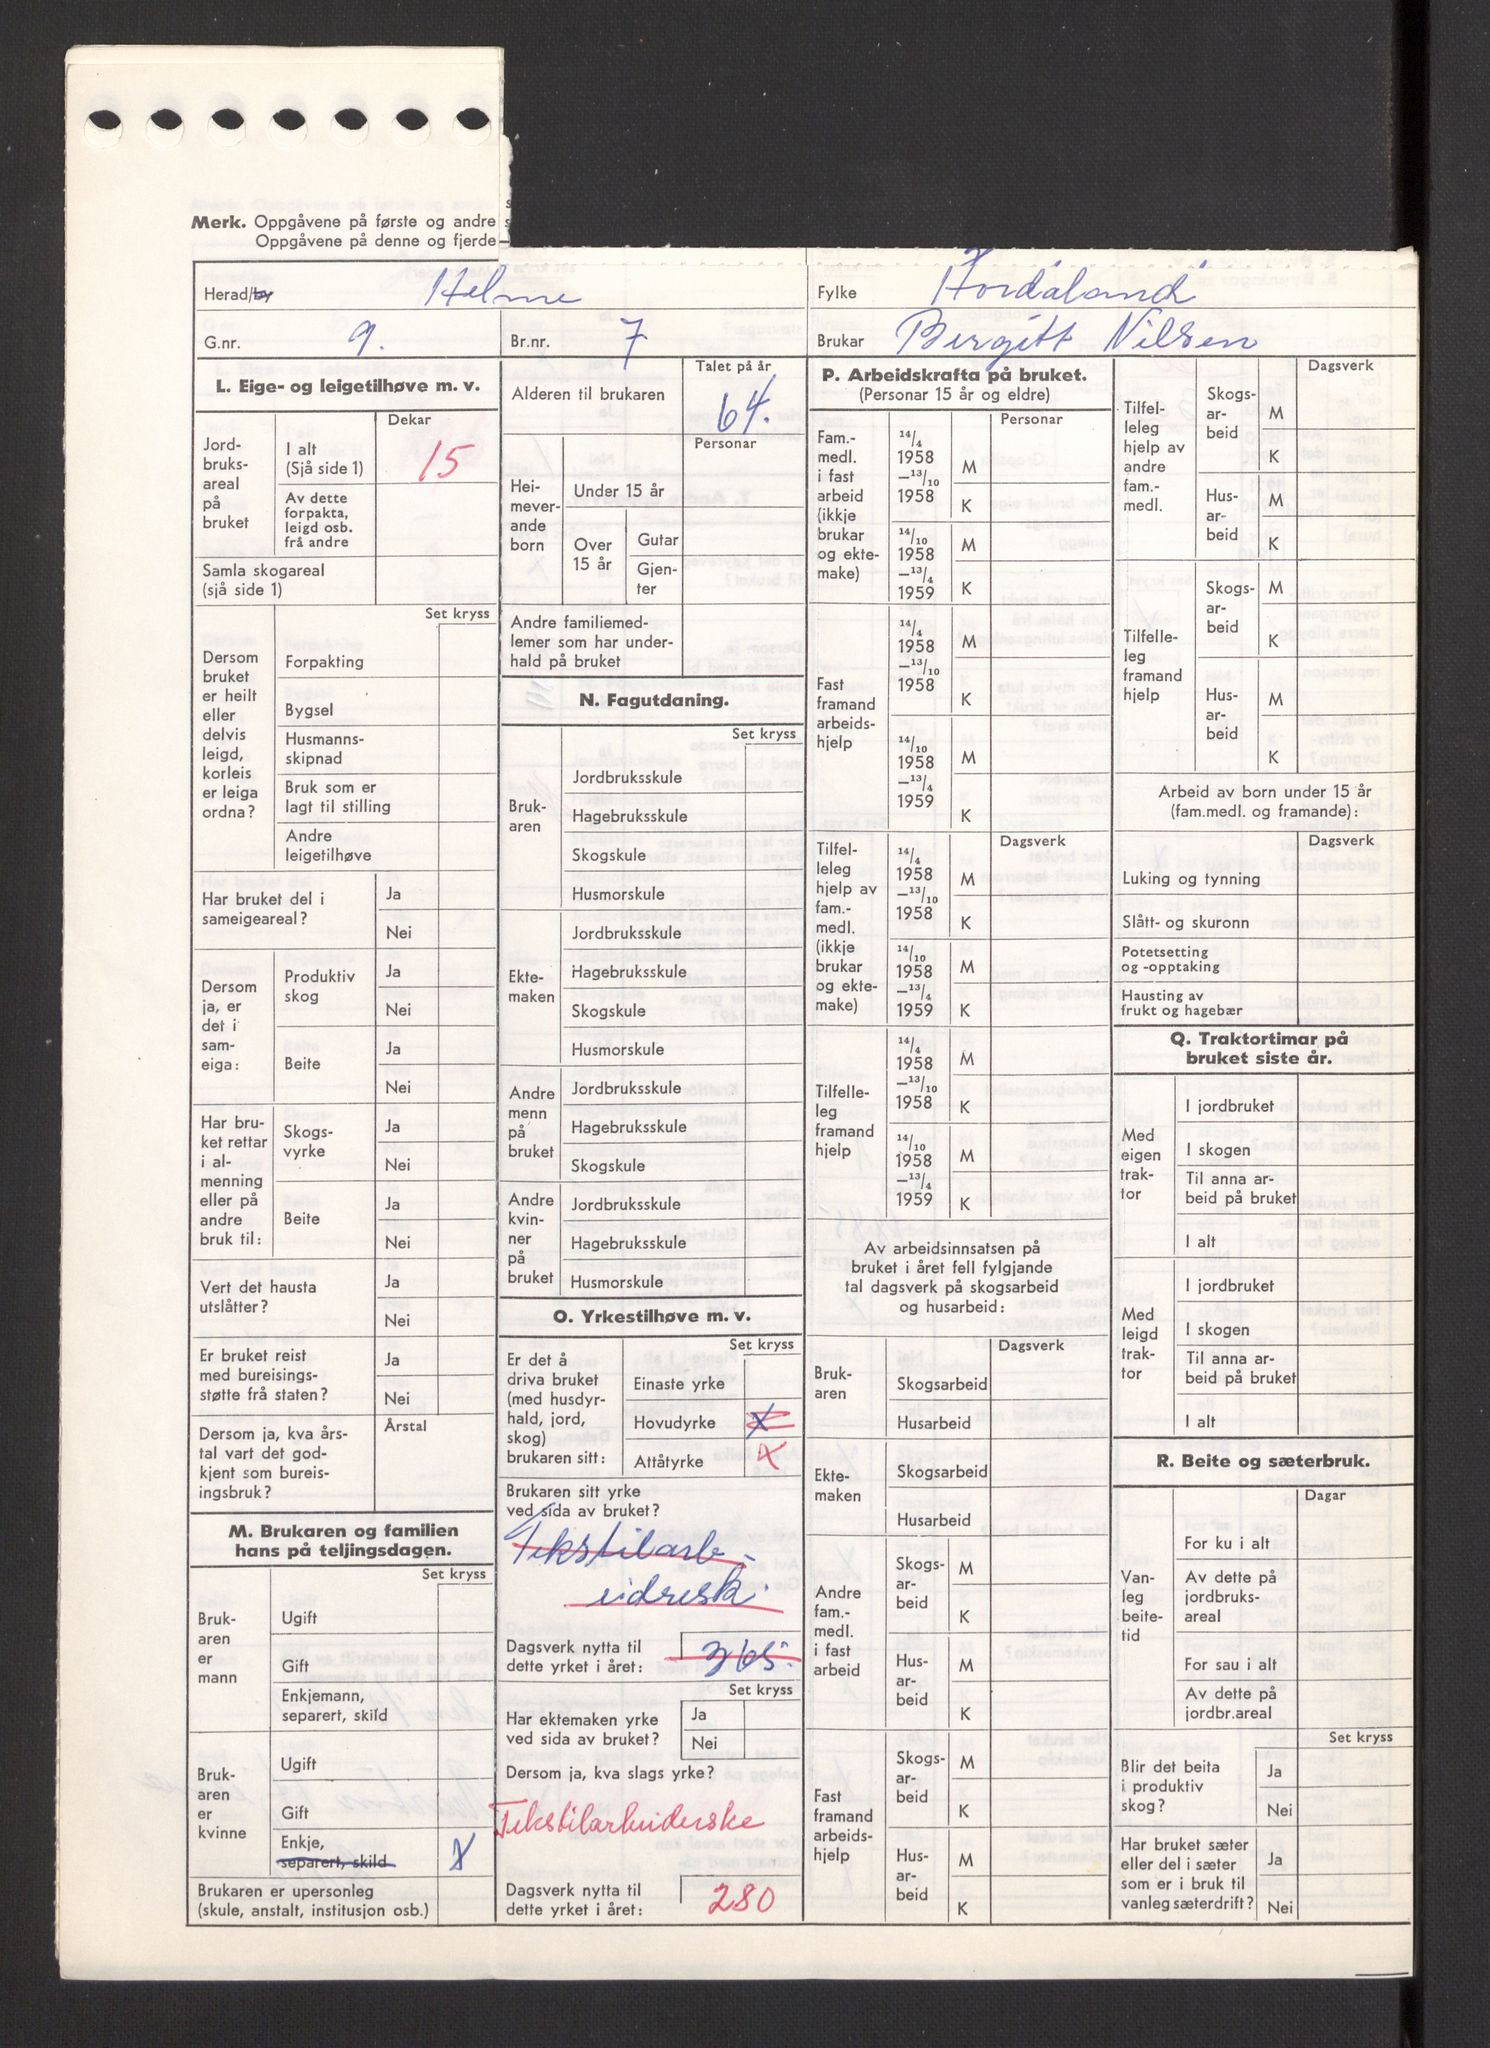 Merk. Oppgåvene på første og andre s
Oppgåvene på denne og fjerde
Herad/by Helme
Fylke Hordaland
G.nr. 9.
Br.nr. 7
Brukar Bergitt Nilsen
L. Eige- og leigetilhøve m. v.
Dekar
Jord-
bruks-
areal
på
bruket
I alt
(Sjå side 1)
15
Av dette
forpakta,
leigd osb.
frå andre
Samla skogareal
(sjå side 1)
Set kryss
Dersom
bruket
er heilt
eller
delvis
leigd,
korleis
er leiga
ordna?
Forpakting
Bygsel
Husmanns-
skipnad
Bruk som er
lagt til stilling
Andre
leigetilhøve
Har bruket del i
sameigeareal?
Ja
Nei
Dersom
ja, er
det i
sam-
eiga:
Produktiv
skog
Ja
Nei
Beite
Ja
Nei
Har bru-
ket rettar
i al-
menning
eller på
andre
bruk til:
Skogs-
vyrke
Ja
Nei
Beite
Ja
Nei
Vert det hausta
utslåtter?
Ja
Nei
Er bruket reist
med bureisings-
støtte frå staten?
Ja
Nei
Dersom ja, kva års-
tal vart det god-
kjent som bureis-
ingsbruk?
Årstal
M. Brukaren og familien
hans på teljingsdagen.
Set kryss
Bruk-
aren
er
mann
Ugift
Gift
Enkjemann,
separert, skild
Bruk-
aren
er
kvinne
Ugift
Gift
Enkje,
separert, skild
X
Brukaren er upersonleg
(skule, anstalt, institusjon osb.)
Talet på år
Alderen til brukaren
64.
Personar
Hei-
mever-
ande
born
Under 15 år
Over
15 år
Gutar
Gjen-
ter
Andre familiemed-
lemer som har under-
hald på bruket
N. Fagutdaning.
Set kryss
Bruk-
aren
Jordbruksskule
Hagebruksskule
Skogskule
Husmorskule
Ekte-
maken
Jordbruksskule
Hagebruksskule
Skogskule
Husmorskule
Andre
menn
på
bruket
Jordbruksskule
Hagebruksskule
Skogskule
Andre
kvin-
ner
på
bruket
Jordbruksskule
Hagebruksskule
Husmorskule
O. Yrkestilhøve m. v.
Set kryss
Er det å
driva bruket
(med husdyr-
hald, jord,
skog)
brukaren sitt:
Einaste yrke
Hovudyrke X
Attåtyrke X
Brukaren sitt yrke
ved sida av bruket?
Tekstilarb-
eidresk.
Dagsverk nytta til
dette yrket i året:
365.
Set kryss
Har ektemaken yrke
ved sida av bruket?
Ja
Nei
Dersom ja, kva slags yrke?
Tekstilarbeiderske
Dagsverk nytta til
dette yrket i året:
280
P. Arbeidskrafta på bruket.
(Personar 15 år og eldre)
Personar
Fam.-
medl.
i fast
arbeid
(ikkje
brukar
og ekte-
make)
14/4
1958
—13/10
1958
M
K
14/10
1958
—13/4
1959
M
K
Fast
framand
arbeids-
hjelp
14/4
1958
—13/10
1958
M
K
14/10
1958
—13/4
1959
M
K
Dagsverk
Tilfel-
leleg
hjelp av
fam.-
medl.
(ikkje
brukar
og ekte-
make)
14/4
1958
—13/10
1958
M
K
14/10
1958
—13/4
1959
M
K
Tilfelle-
leg
framand
hjelp
14/4
1958
—13/10
1958
M
K
14/10
1958
—13/4
1959
M
K
Av arbeidsinnsatsen på
bruket i året fell fylgjande
tal dagsverk på skogsarbeid
og husarbeid:
Dagsverk
Bruk-
aren
Skogsarbeid
Husarbeid
Ekte-
maken
Skogsarbeid
Husarbeid
Andre
fam.-
medl.
i fast
arbeid
Skogs-
ar-
beid
M
K
Hus-
ar-
beid
M
K
Fast
framand
arbeids-
hjelp
Skogs-
ar-
beid
M
K
Hus-
ar-
beid
M
K
Dagsverk
Tilfel-
leleg
hjelp av
andre
fam.-
medl.
Skogs-
ar-
beid
M
K
Hus-
ar-
beid
M
K
Tilfelle-
leg
framand
hjelp
Skogs-
ar-
beid
M
K
Hus-
ar-
beid
M
K
Arbeid av born under 15 år
(fam.medl. og framande):
Dagsverk
Luking og tynning
Slått- og skuronn
Potetsetting
og -opptaking
Hausting av
frukt og hagebær
Q. Traktortimar på
bruket siste år.
Med
eigen
trak-
tor
I jordbruket
I skogen
Til anna ar-
beid på bruket
I alt
Med
leigd
trak-
tor
I jordbruket
I skogen
Til anna ar-
beid på bruket
I alt
R. Beite og sæterbruk.
Dagar
Van-
leg
beite-
tid
For ku i alt
Av dette på
jordbruks-
areal
For sau i alt
Av dette på
jordbr.areal
Set kryss
Blir det beita
i produktiv
skog?
Ja
Nei
Har bruket sæter
eller del i sæter
som er i bruk til
vanleg sæterdrift?
Ja
Nei